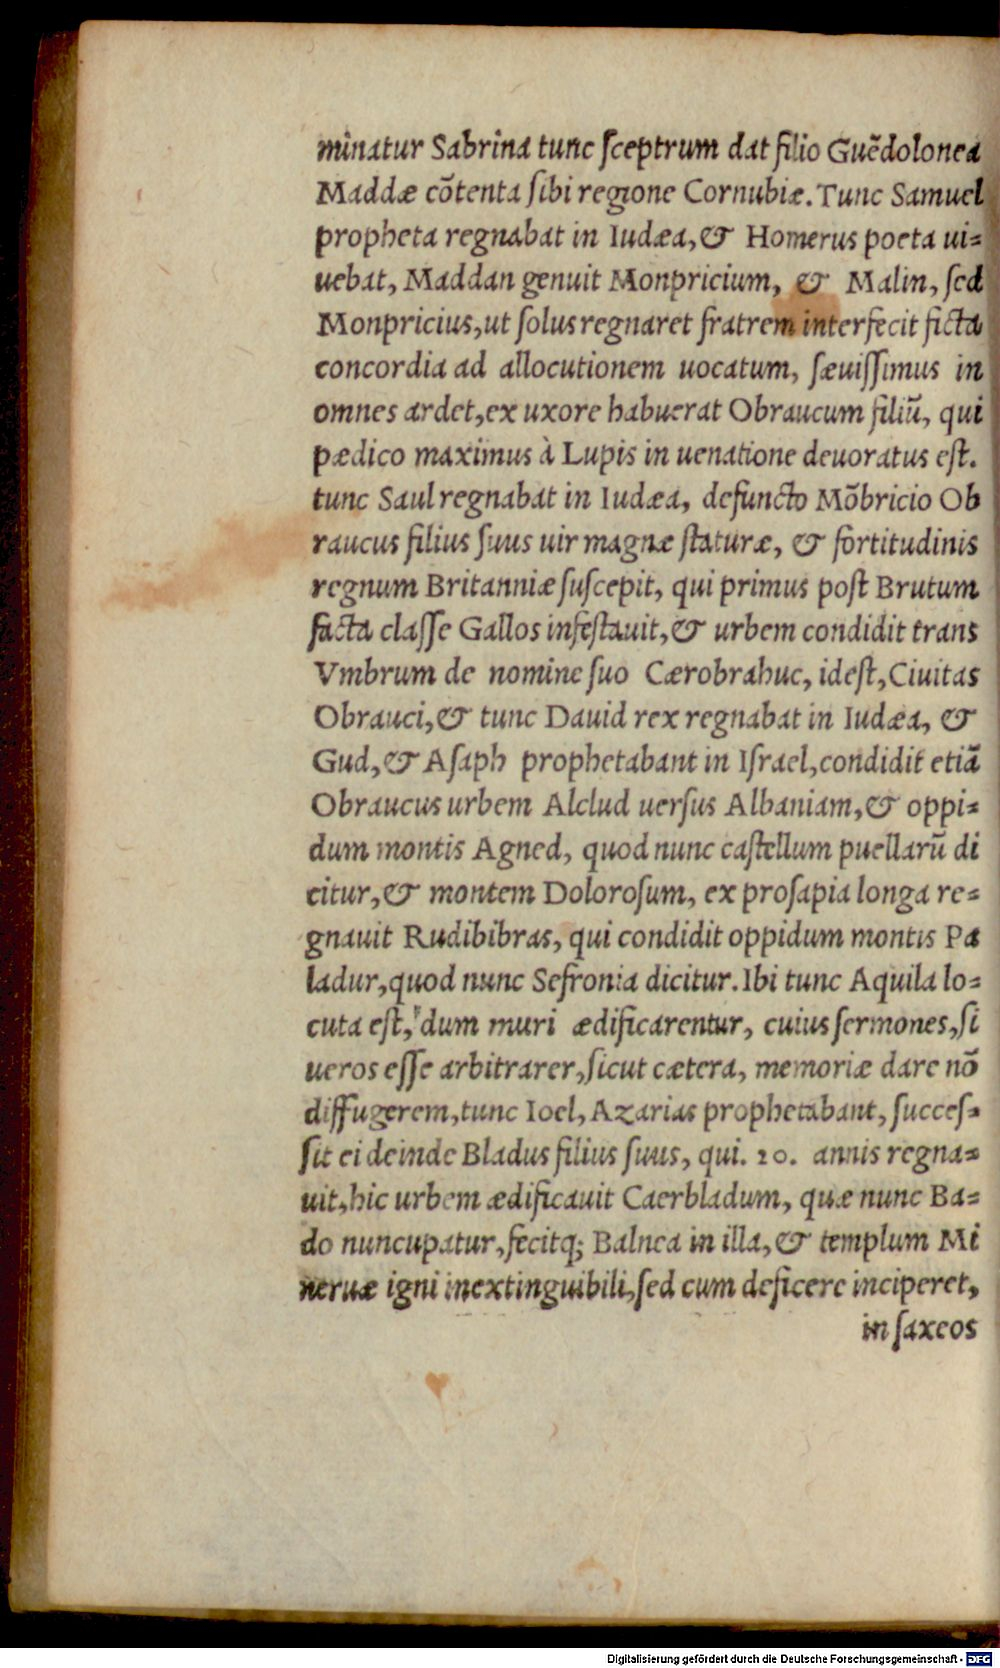 minatur Sabrina tunc ſceptrum dat filio Guẽdolonea
Maddæ cõtenta ſibi regione Cornubiæ. Tunc Samuel
propheta regnabat in Iudæa, & Homerus poeta ui-
uebat, Maddan genuit Monpricium, & Malin, ſed
Monpricius, ut ſolus regnaret fratrem interfecit ficta
concordia ad allocutionem uocatum, ſæuiſſimus in
omnes ardet, ex uxore habuerat Obraucum filiũ, qui
pædico maximus à Lupis in uenatione deuoratus eſt.
tunc Saul regnabat in Iudæa, defuncto Mõbricio Ob
raucus filius ſuus uir magnæ ſtaturæ, & fortitudinis
regnum Britanniæ ſuſcepit, qui primus poſt Brutum
facta claſſe Gallos infeſtauit, & urbem condidit trans
Vmbrum de nomine ſuo Cærobrahuc, ideſt, Ciuitas
Obrauci, & tunc Dauid rex regnabat in Iudæa, &
Gud, & Aſaph prophetabant in Iſrael, condidit etiã
Obraucus urbem Alclud uerſus Albaniam, & oppi-
dum montis Agned, quod nunc caſtellum puellarũ di
citur, & montem Doloroſum, ex proſapia longa re-
gnauit Rudibibras, qui condidit oppidum montis Pa
ladur, quod nunc Sefronia dicitur. Ibi tunc Aquila lo-
cuta eſt, dum muri ædificarentur, cuius ſermones, ſi
ueros eſſe arbitrarer, ſicut cætera, memoriæ dare nõ
diffugerem, tunc Ioel, Azarias prophetabant, ſucceſ-
ſit ei deinde Bladus filius ſuus, qui. 20. annis regna-
uit, hic urbem ædificauit Caerbladum, quæ nunc Ba-
do nuncupatur, fecitq; Balnea in illa, & templum Mi
neruæ igni inextinguibili, ſed cum deficere inciperet,
in ſaxeos
Digitalisierung gefördert durch die Deutsche Forschungsgemeinschaft - DFG